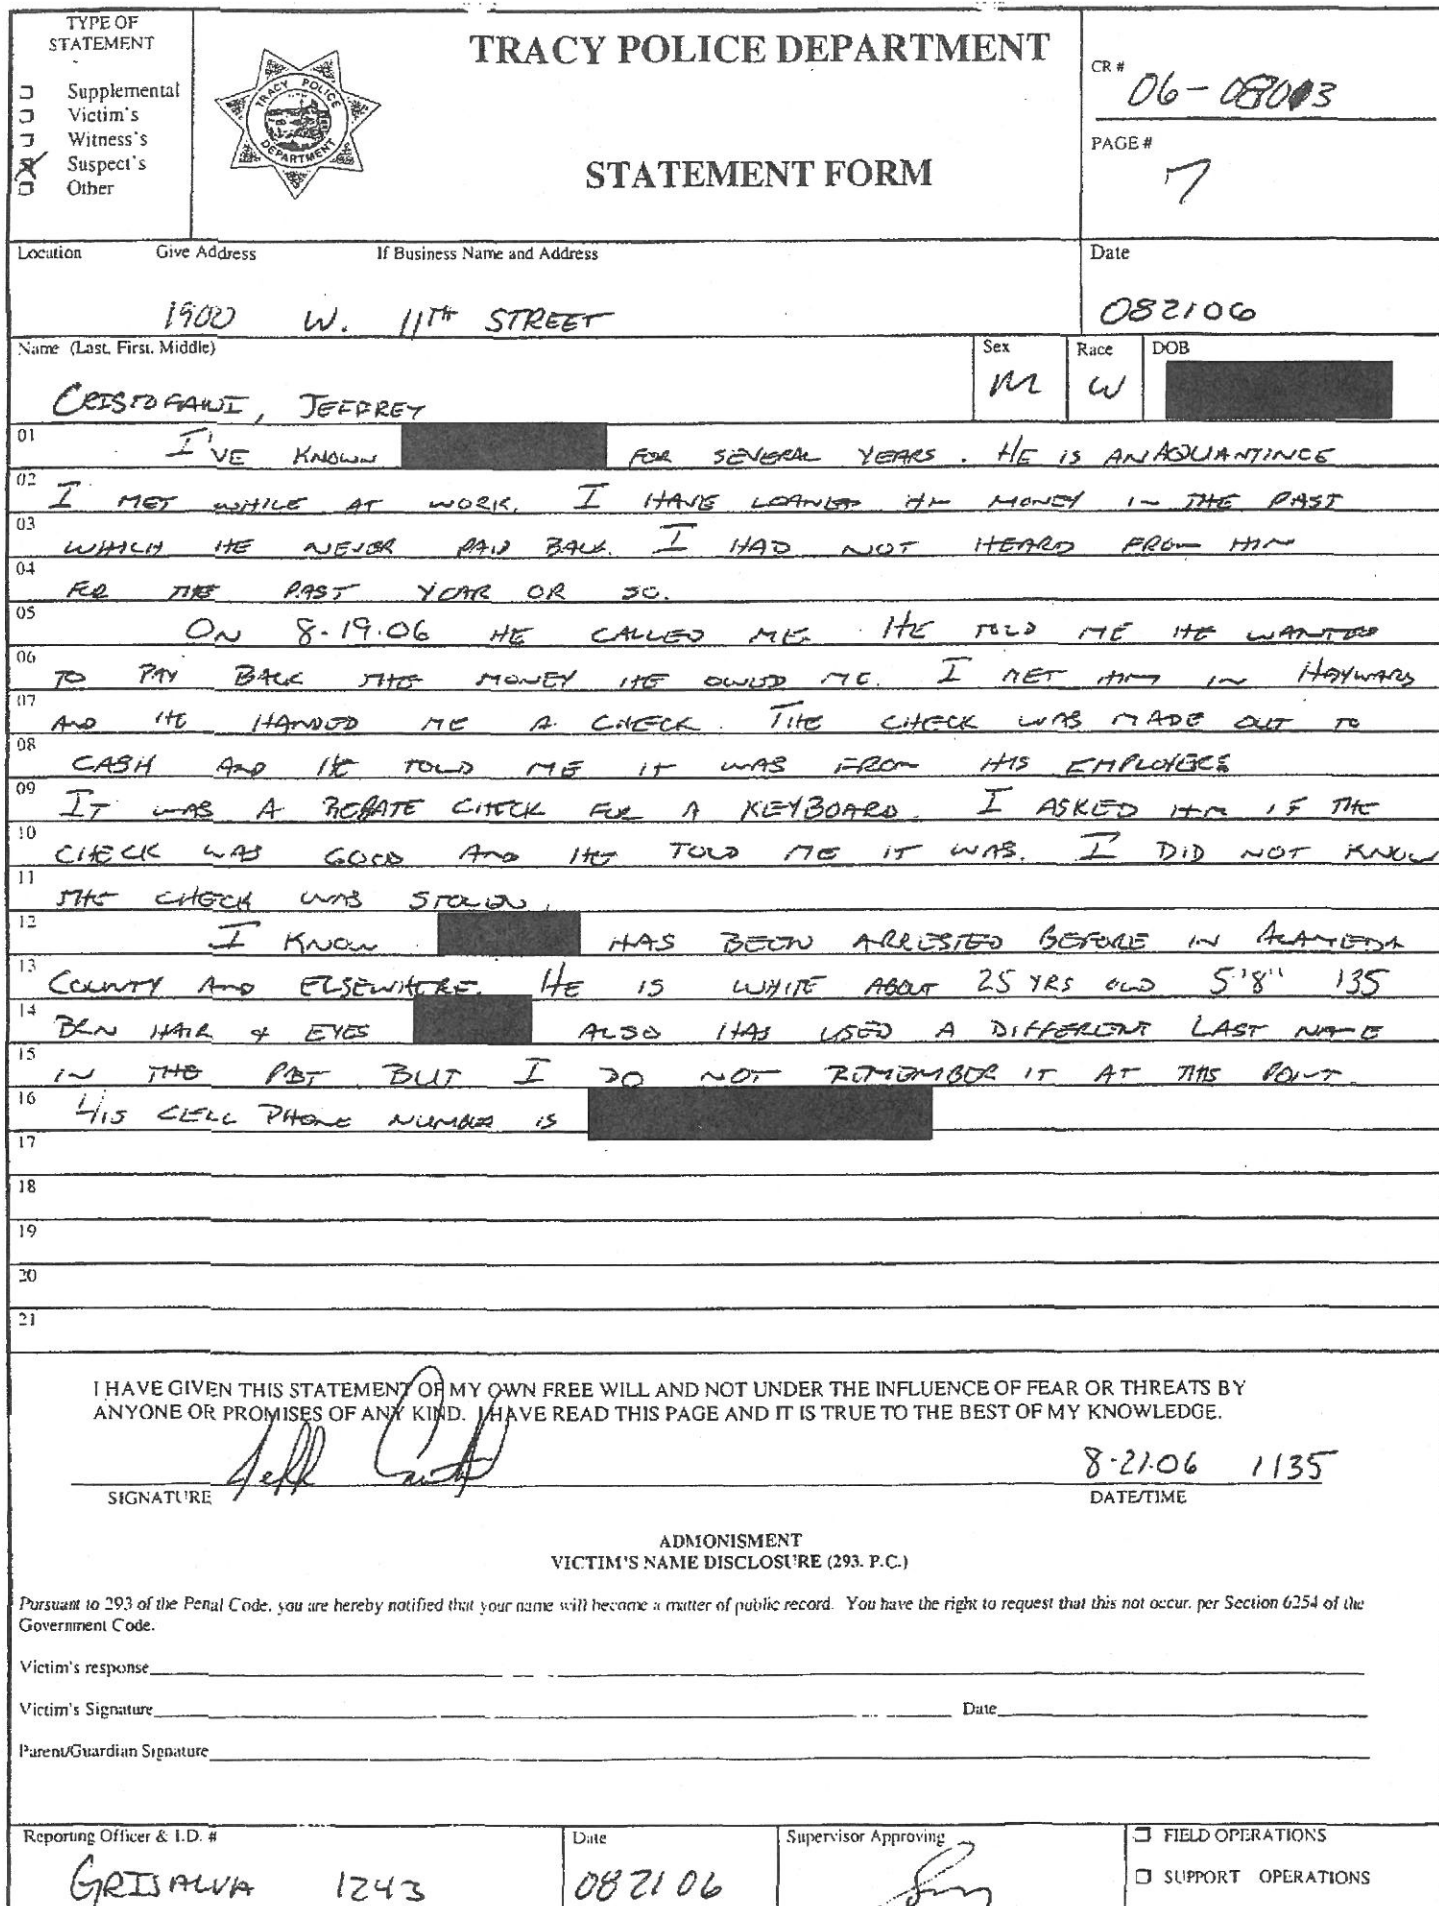 TYPE OF
STATEMENT
Supplemental
Victim's
Witness's
Suspect's
Other
TRACY POLICE
DEPARTMENT
TRACY POLICE DEPARTMENT
STATEMENT FORM
CR #
PAGE #
7
Location Give Address If Business Name and Address
1900 W. 11TH STREET
Date
082106
Name (Last, First, Middle)
CRISTOFANI, JEFFREY
Sex
M
Race
W
DOB
01 I'VE KNOWN FOR SEVERAL YEARS. HE IS AN AQUANTINCE
02 I MET WHILE AT WORK. I HAVE LOANED HIM MONEY IN THE PAST
03 WHICH HE NEVER PAID BACK. I HAD NOT HEARD FROM HIM
04 FOR THE PAST YEAR OR SO.
05 ON 8-19-06 HE CALLED ME. HE TOLD ME HE WANTED
06 TO PAY BACK THE MONEY HE OWED ME. I MET HIM IN HAYWARD
07 AND HE HANDED ME A CHECK. THE CHECK WAS MADE OUT TO
08 CASH AND HE TOLD ME IT WAS FROM HIS EMPLOYERS
09 IT WAS A REBATE CHECK FOR A KEYBOARD. I ASKED HIM IF THE
10 CHECK WAS GOOD AND HE TOLD ME IT WAS. I DID NOT KNOW
11 THE CHECK WAS STOLEN.
12 I KNOW HAS BEEN ARRESTED BEFORE IN ALAMEDA
13 COUNTY AND ELSEWHERE. HE IS WHITE ABOUT 25 YRS OLD 5'8" 135
14 BRN HAIR & EYES ALSO HAS USED A DIFFERENT LAST NAME
15 IN THE PAST BUT I DO NOT REMEMBER IT AT THIS POINT.
16 HIS CELL PHONE NUMBER IS
17
18
19
20
21
I HAVE GIVEN THIS STATEMENT OF MY OWN FREE WILL AND NOT UNDER THE INFLUENCE OF FEAR OR THREATS BY
ANYONE OR PROMISES OF ANY KIND. I HAVE READ THIS PAGE AND IT IS TRUE TO THE BEST OF MY KNOWLEDGE.
Jeff 8-21-06 1135
SIGNATURE DATE/TIME
ADMONISMENT
VICTIM'S NAME DISCLOSURE (293. P.C.)
Pursuant to 293 of the Penal Code, you are hereby notified that your name will become a matter of public record. You have the right to request that this not occur, per Section 6254 of the
Government Code.
Victim's response
Victim's Signature Date
Parent/Guardian Signature
Reporting Officer & I.D. #
GRIJALVA 1243
Date
082106
Supervisor Approving
FIELD OPERATIONS
SUPPORT OPERATIONS